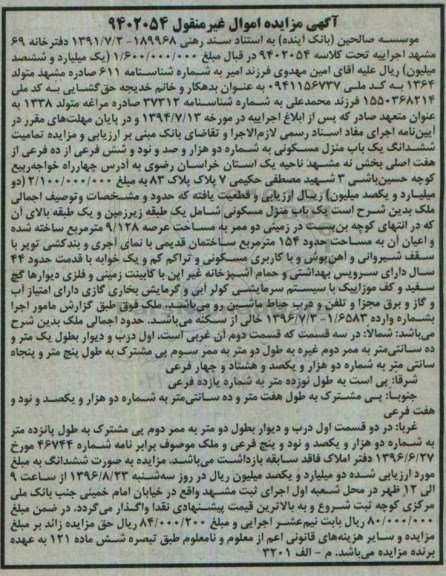 آگهی مزایده اموال غیرمنقول ۹۴۰۲۰۵۴
موسسه صالحین (بانک آینده) به استناد سند رهنی ۱۸۹۹۶۸-۱۳۹۱/۷/۳ دفترخانه ۶۹
مشهد اجراییه تحت کلاسه ۹۴۰۲۰۵۴ در قبال مبلغ ۱/۶۰۰/۰۰۰/۰۰۰ (یک میلیارد و ششصد
میلیون) ریال علیه آقای امین مهدوی فرزند امیر به شماره شناسنامه ۶۱۱ صادره مشهد متولد
۱۳۶۴ به کد ملی ۰۹۴۱۱۵۶۷۳۷ به عنوان بدهکار و خانم خدیجه حق‌گشایی به کد ملی
۱۵۵۰۳۶۸۲۱۴ فرزند محمدعلی به شماره شناسنامه ۳۷۳۱۲ صادره مراغه متولد ۱۳۳۸ به
عنوان متعهد صادر که پس از ابلاغ اجراییه در مورخه ۱۳۹۴/۷/۱۳ و در پایان مهلت‌های مقرر در
آیین‌نامه اجرای مفاد اسناد رسمی لازم‌الاجرا و تقاضای بانک مبنی بر ارزیابی و مزایده تمامیت
ششدانگ یک باب منزل مسکونی به شماره دو هزار و صد و نود و شش فرعی از ده فرعی از
هفت اصلی بخش نه مشهد ناحیه یک استان خراسان رضوی به آدرس چهارراه خواجه‌ربیع
کوچه حسین‌باشی ۳ شهید مصطفی حکیمی ۷ پلاک پلاک ۸۳ به مبلغ ۲/۱۰۰/۰۰۰/۰۰۰ (دو
میلیارد و یکصد میلیون) ریال ارزیابی و قطعیت یافته که حدود و مشخصات و توصیف اجمالی
ملک بدین شرح است یک باب منزل مسکونی شامل یک طبقه زیرزمین و یک طبقه بالای آن
که در انتهای کوچه بن‌بست در زمینی دو ممر به مساحت عرصه ۹/۱۲۸ مترمربع ساخته شده
و اعیان آن به مساحت حدود ۱۵۴ مترمربع ساختمان قدیمی با نمای آجری و بندکشی توپر با
سقف شیروانی و آهن‌پوش و با کاربری مسکونی و تراکم کم و یک خوابه با قدمت حدود ۴۴
سال دارای سرویس بهداشتی و حمام آشپزخانه غیر اپن با کابینت زمینی و فلزی دیوارها گچ
سفید و کف موزاییک با سیستم سرمایشی کولر آبی و گرمایش بخاری گازی دارای امتیاز آب
و گاز و برق مجزا و تلفن و درب حیاط ماشین رو می‌باشد. ملک فوق طبق گزارش مامور اجرا
بشماره وارده ۱/۶۵۸۳-۱۳۹۶/۷/۳ خالی از سکنه می‌باشد. حدود اجمالی ملک بدین شرح
می‌باشد: شمالا: در سه قسمت که قسمت دوم آن غربی است، اول درب و دیوار بطول یک متر و
ده سانتی‌متر به ممر دوم غیره به طول دو متر به ممر سوم پی مشترک به طول پنج متر و پنجاه
سانتی متر به شماره دو هزار و یکصد و هشتاد و چهار فرعی
شرقا: پی است به طول نوزده متر به شماره یازده فرعی
جنوبا: پی مشترک به طول هفت متر و ده سانتی‌متر به شماره دو هزار و یکصد و نود و
هفت فرعی
غربا: در دو قسمت اول درب و دیوار بطول دو متر به ممر دوم پی مشترک به طول پانزده متر
به شماره دو هزار و یکصد و نود و پنج فرعی و ملک موصوف برابر نامه شماره ۴۶۷۴۴ مورخ
۱۳۹۶/۶/۲۷ دفتر املاک فاقد سابقه بازداشت می‌باشد، مزایده به صورت ششدانگ به مبلغ
مورد ارزیابی شده دو میلیارد و یکصد میلیون ریال در روز سه‌شنبه ۱۳۹۶/۸/۲۳ از ساعت ۹
الی ۱۲ ظهر در محل شعبه اول اجرای ثبت مشهد واقع در خیابان امام خمینی جنب بانک ملی
مرکزی کوچه ثبت شروع و به بالاترین قیمت پیشنهادی نقدا واگذار می‌گردد. در ضمن مبلغ
۸۰/۰۰۰/۰۰۰ ریال بابت نیم‌عشر اجرایی و مبلغ ۸۴/۰۰۰/۲۰۰ ریال حق مزایده زائد بر مبلغ
مزایده و سایر هزینه‌های قانونی اعم از معلوم و نامعلوم طبق تبصره شش ماده ۱۲۱ به عهده
برنده مزایده می‌باشد. م - الف ۳۲۰۱